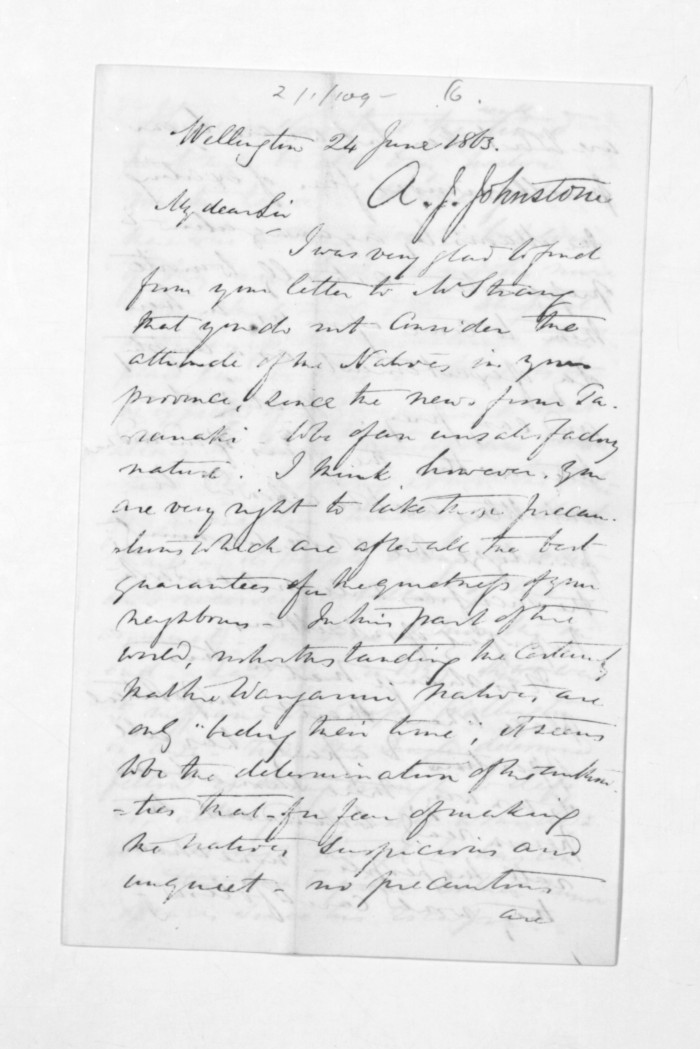 2/1/109- 16.
Wellington 24 June 1863.
A. J. Johnstone
My dear Sir
I was very glad to find
from your letter to Mr Strang
that you do not consider the
attitude of the Natives in your
province, since the news from Ta-
ranaki - to be of an unsatisfactory
nature. I think, however, you
are very right to take those precau-
tions which are after all the best
guarantees for the quietness of your
neighbours - In this part of the
world, notwithstanding the certainty
that the Wanganui Natives are
only "biding their time", it seems
to be the determination of the authori-
-ties that - for fear of making
the natives suspicious and
unquiet - no precautions
are